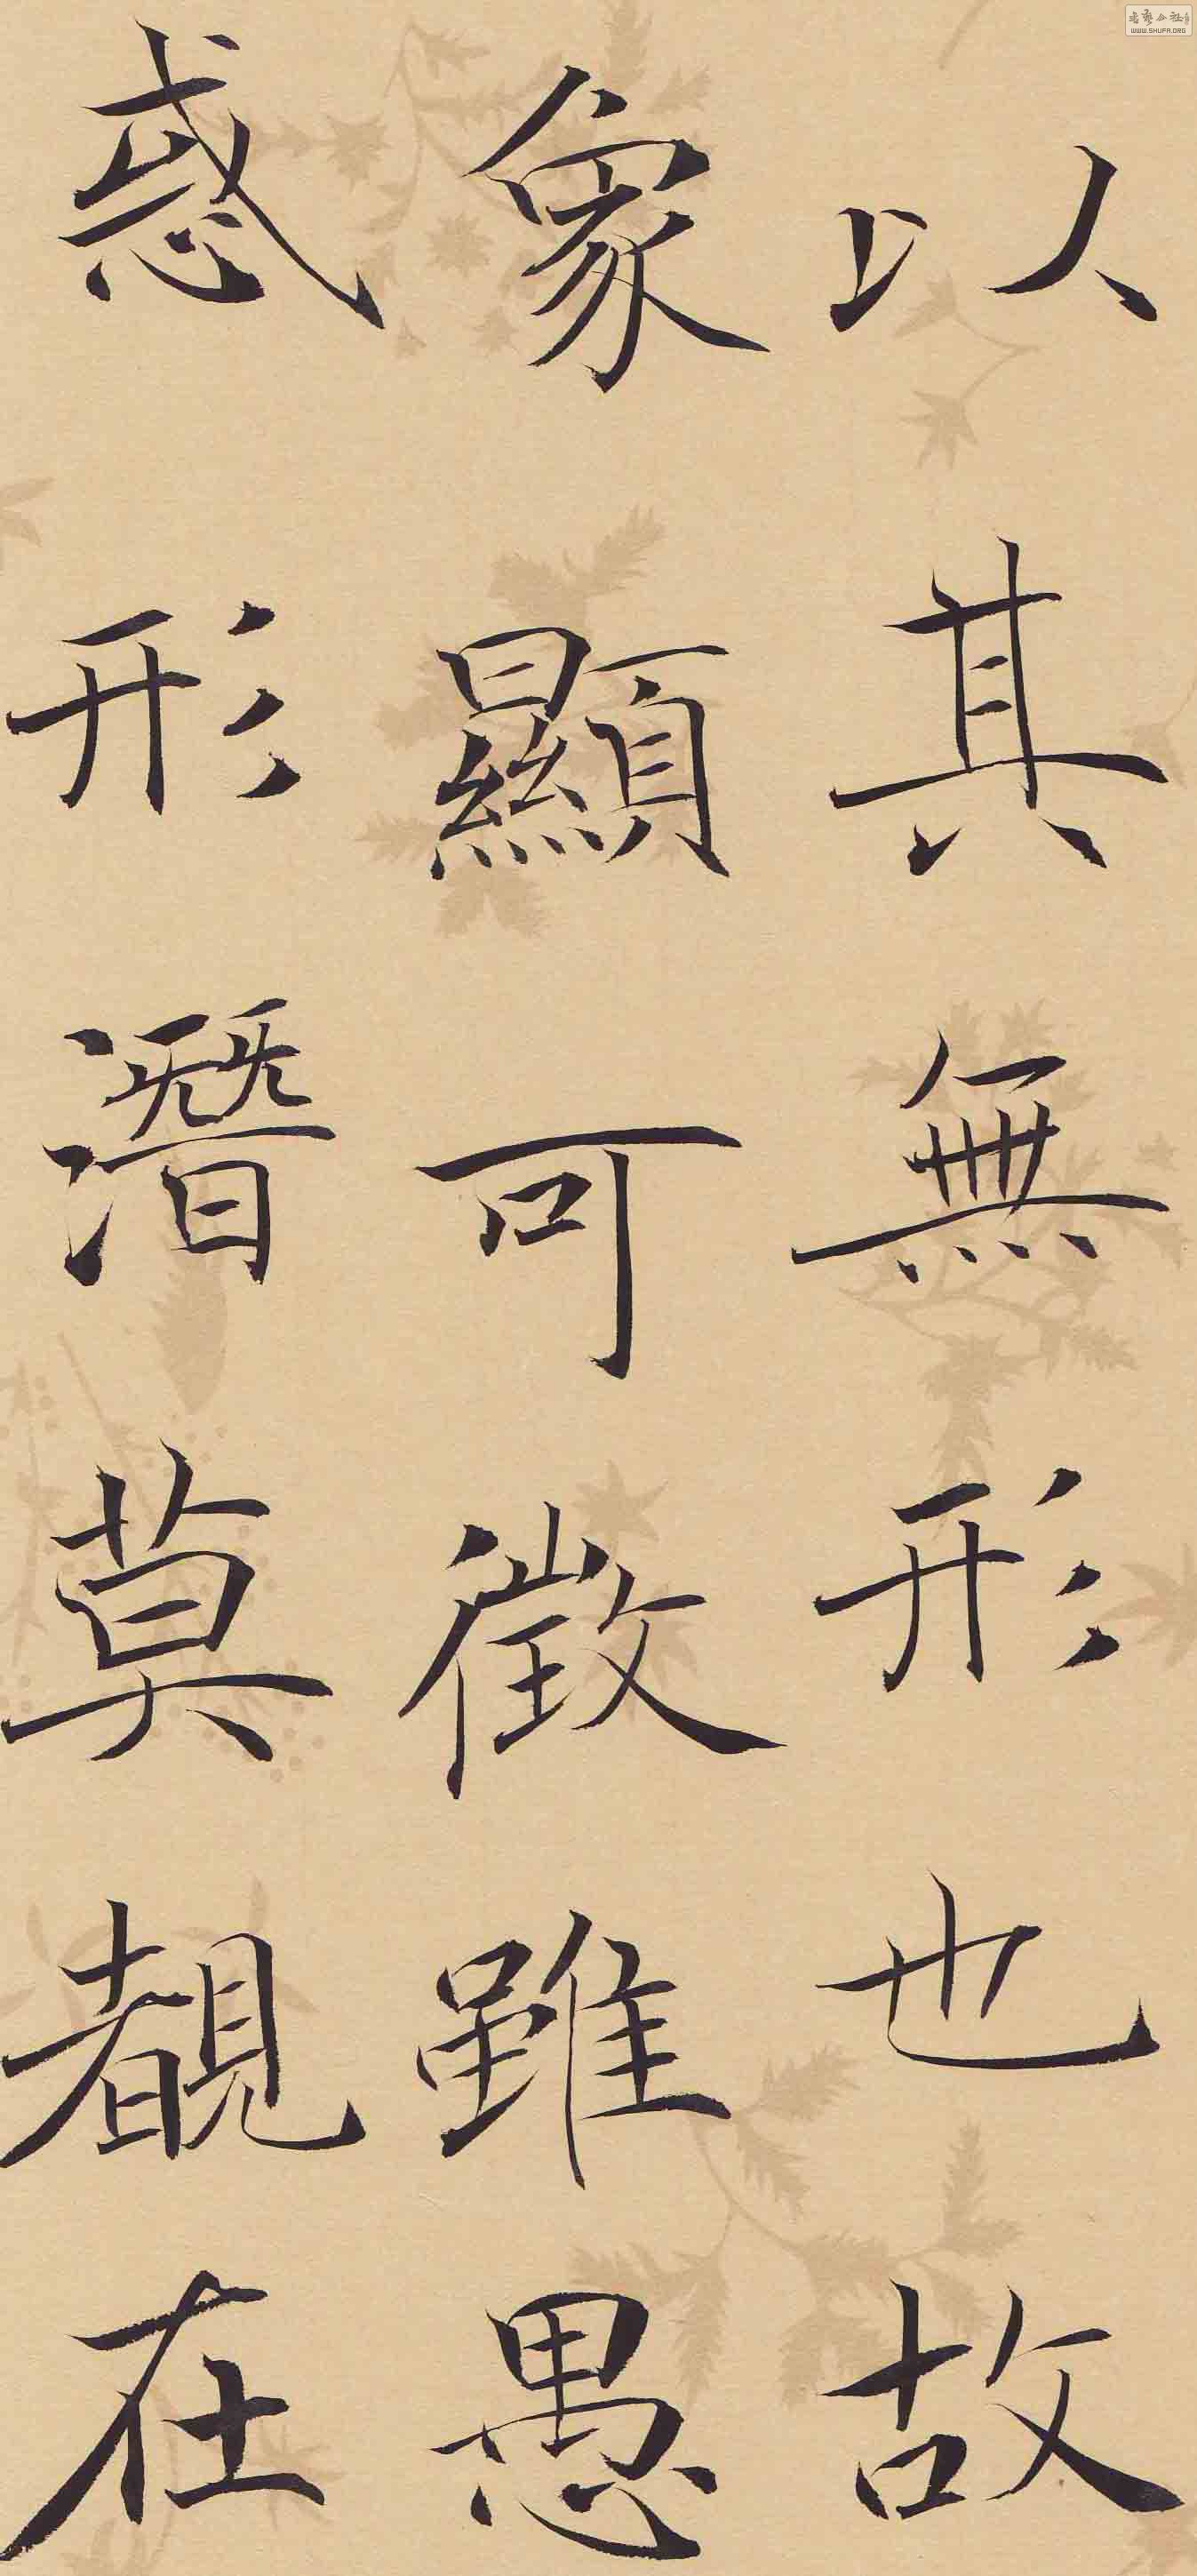 以其無形也故
象顯可徵雖愚
惑形潛莫覩在
WWW.SHUFA.ORG